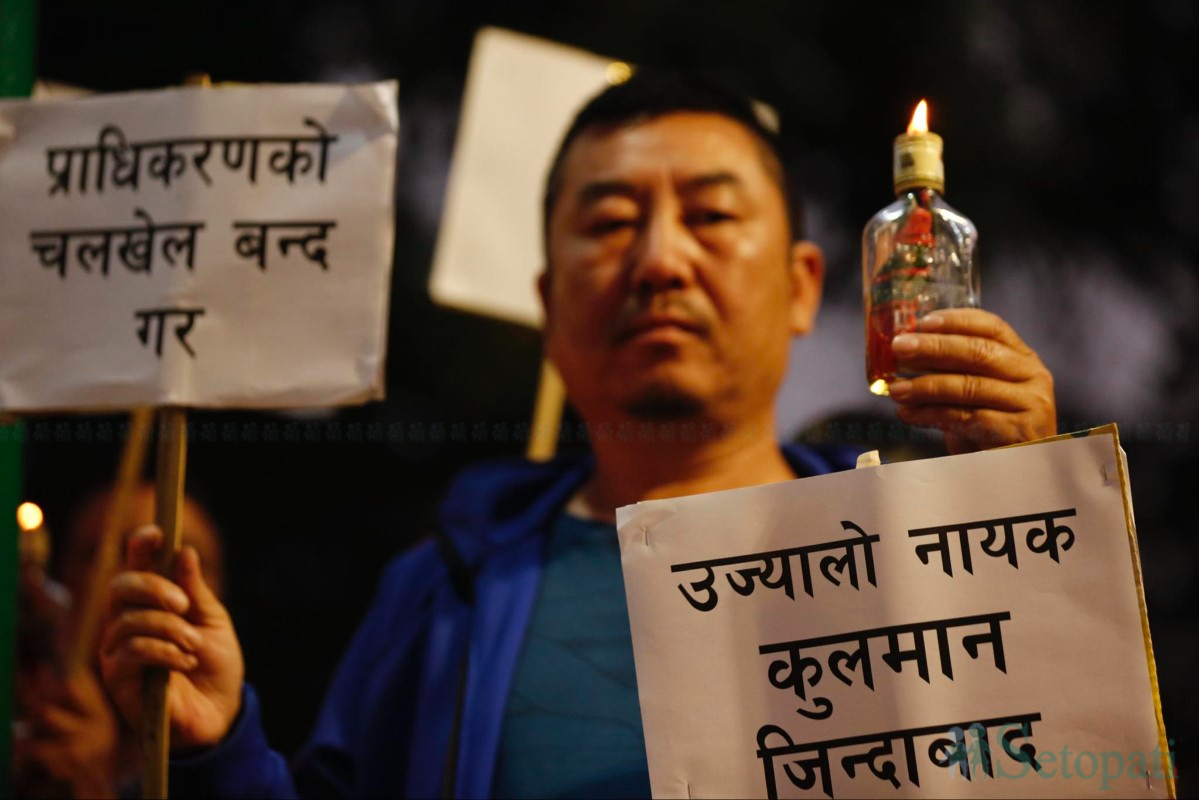 प्राधिकरणको
चलखेल बन्द
गर
उज्यालो नायक
कुलमान
जिन्दाबाद
Setopati